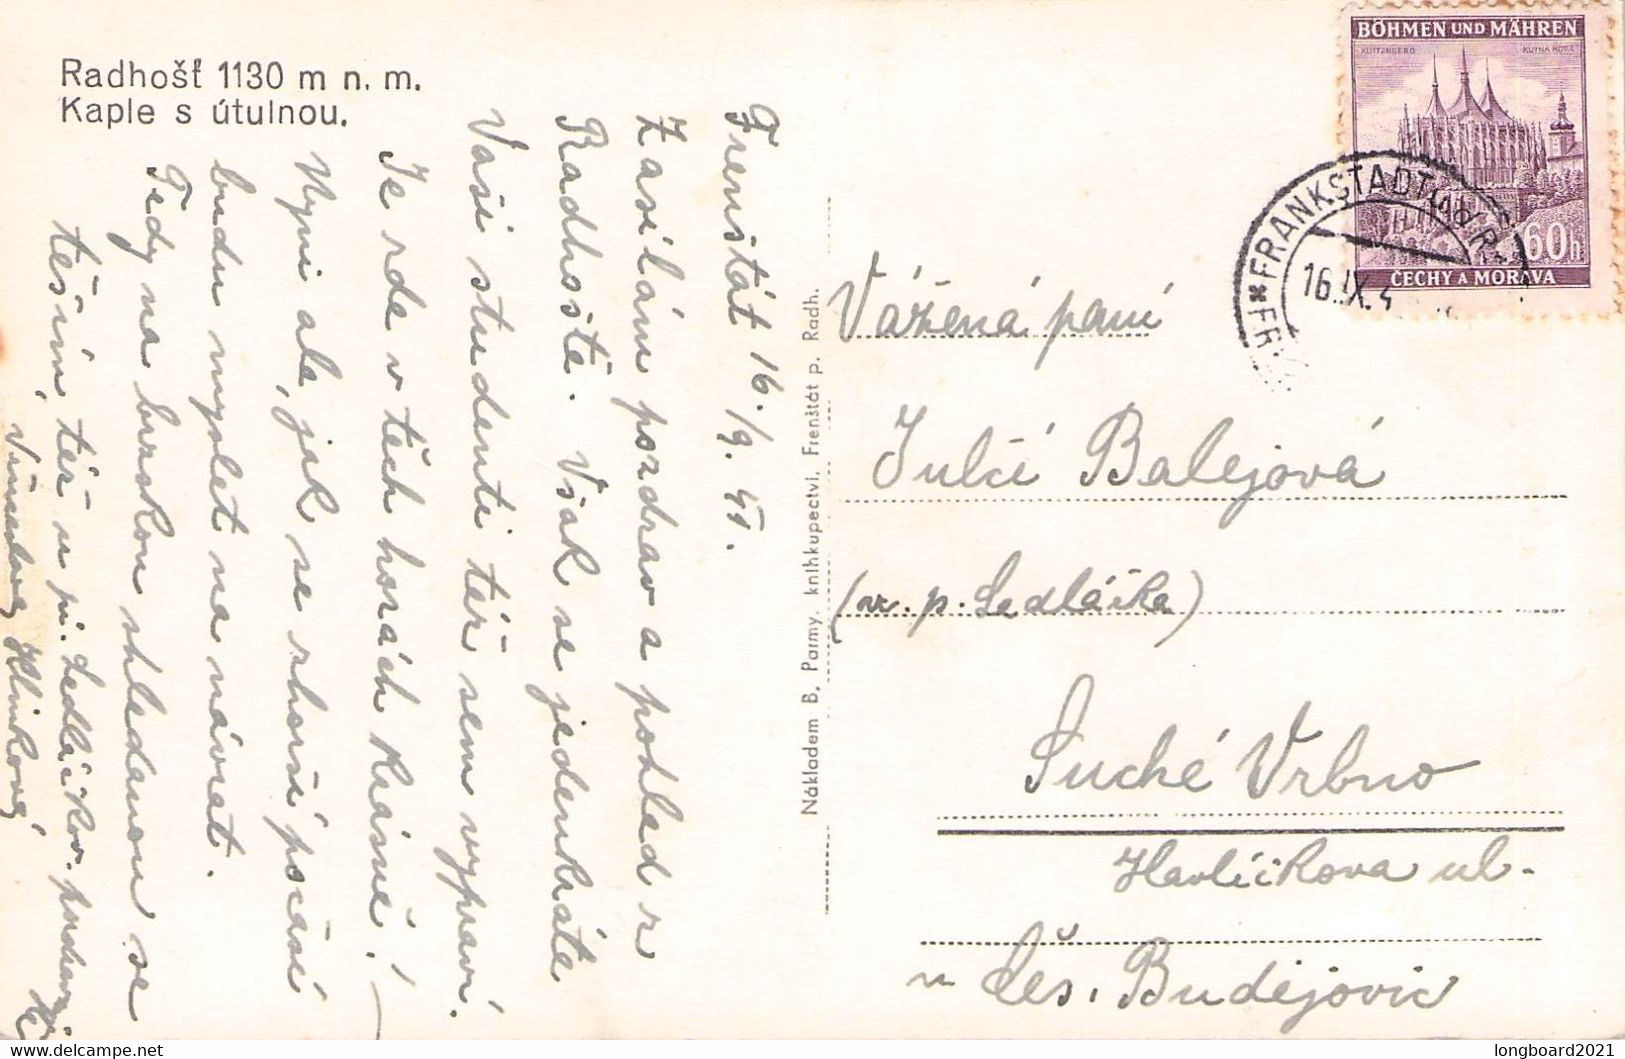 Radhošť 1130 m n. m.
Kaple s útulnou.
Frenštát 16./9. 41.
Zasílám pozdrav a pohled z
Radhoště. Však se jedenkráte
Vaši studenti též sem vypraví.
Je zde v těch horách krásně!
Nyní ale, jak se zhorší počasí
budu myslet na návrat.
Tedy na brzskou shledanou se
těším, též u pí. Sedláčkov.
Hlinkový
Nákladem B. Parmy, knihkupectví, Frenštát p. Radh.
BÖHMEN UND MÄHREN
KUTTENBERG KUTNÁ HORA
60h
ČECHY A MORAVA
FRANKSTADT
16.IX.4
Vážená paní
Julči Balejová
(vz. p. Sedláčka)
Suché Vrbno
Havlíčkova ul.
u Čes. Budějovic
longboard2021